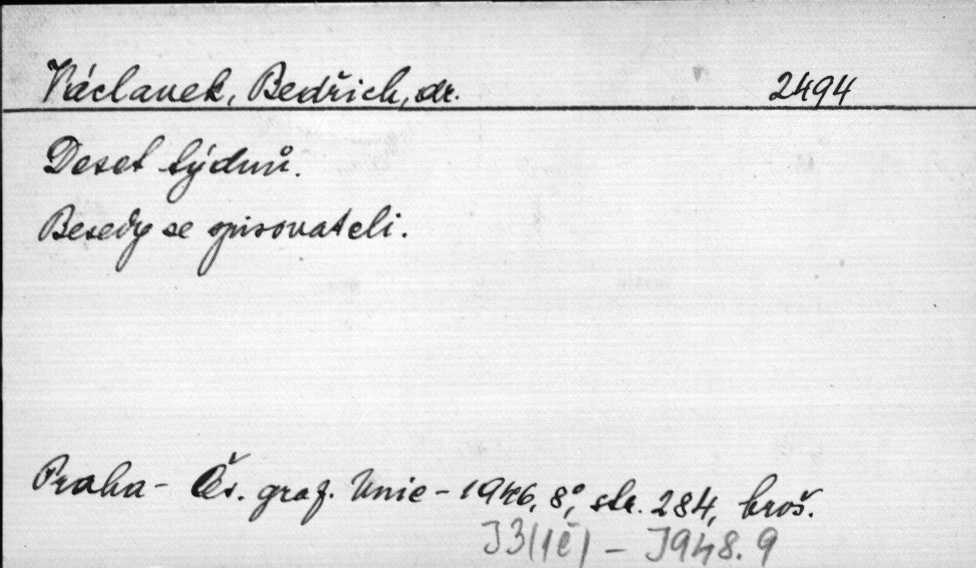 Václavek, Bedřich, dr. 2494
Deset týdnů.
Besedy se spisovateli.
Praha - Čs. graf. Unie - 1946, 8°, str. 284, brož.
J3(1č) - J948.9